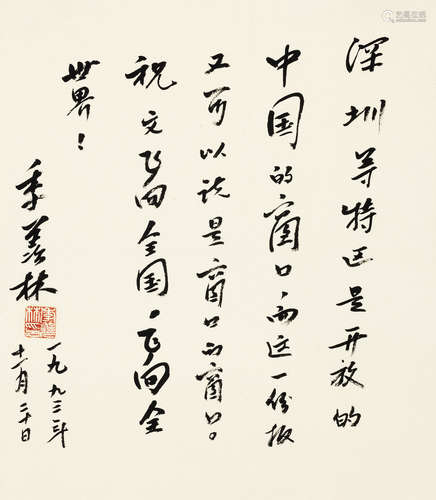 深圳等特区是开放的
中国的窗口，而这一份报
又可以说是窗口的窗口。
祝文飞向全国，飞向全
世界！
季羡林
一九九三年
十一月二十日